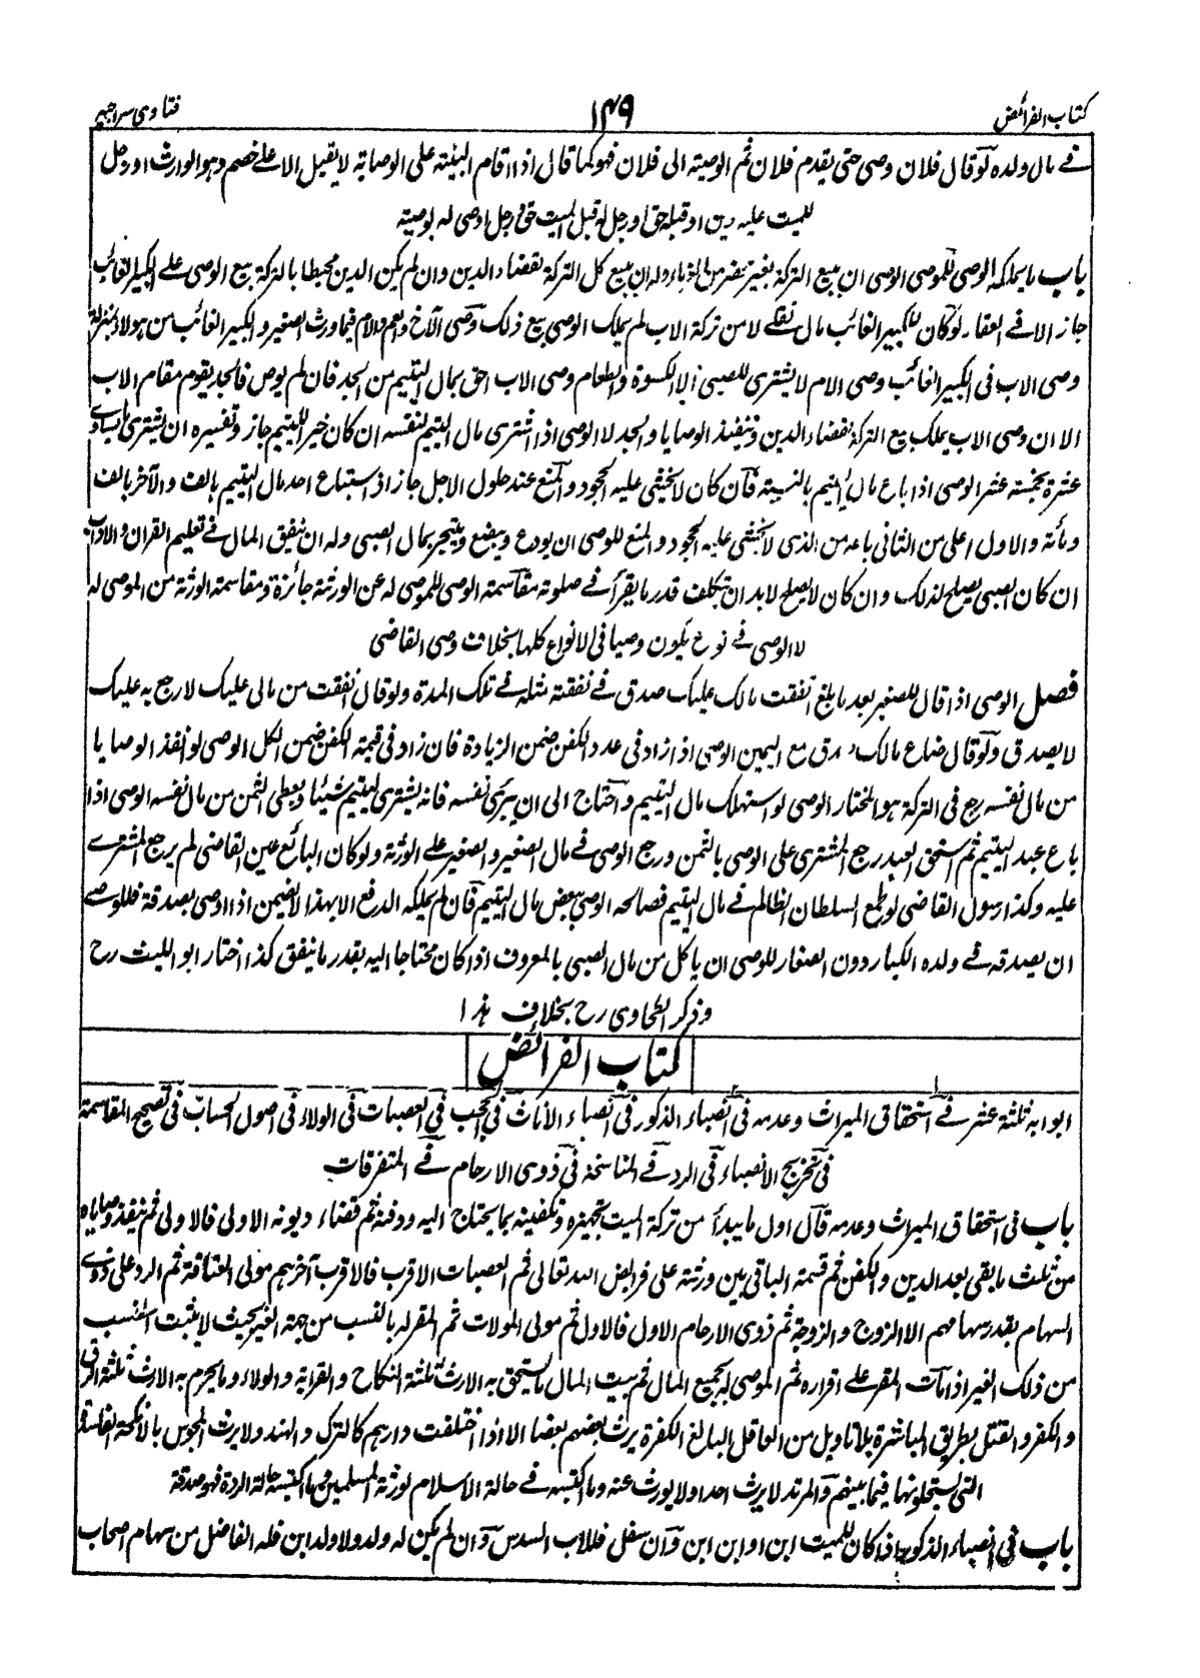 كتاب الفرائض
١٤٩
فتاوى سراجيه
فے مال ولده لو قال فلان وصى حتى يقدم فلان ثم الوصية الى فلان فهو كما قال اذا اقام البينة على الوصاية لا يقبل الا علے خصم وهو الوارث او رجل
للميت عليه دين او قبله حق او رجل له قبل الميت حق او رجل اوصى له بوصية
باب ما يملكه الوصى للموصى الوصى ان يبيع التركة بغير محضر من الغرماء وله ان يبيع كل التركة لقضاء الدين وان لم يكن الدين محيطا بالتركة بيع الوصى علے الكبير الغائب
جاز الا فے العقار لو كان للكبير الغائب مال نقلے لا من تركة الاب لم يملك الوصى بيع ذلك وصى الاخ والعم والام فيما ورث الصغير والكبير الغائب من هولاء بمنزلة
وصى الاب فى الكبير الغائب وصى الام لا يشترى للصبى الا الكسوة والطعام وصى الاب احق بمال اليتيم من الجد فان لم يوص فالجد يقوم مقام الاب
الا ان وصى الاب يملك بيع التركة لقضاء الدين وتنفيذ الوصايا والجد لا الوصى اذا اشترى مال اليتيم لنفسه ان كان خير اليتيم جاز وتفسيره ان يشترى ما يساوے
عشرة بخمسة عشر الوصى اذا باع مال اليتيم بالنسيئة فان كان لا يخشى عليه الجحود والمنع عند حلول الاجل جاز اذ استباع احد مال اليتيم بالف والآخر بالف
ومأئة والاول املى من الثانى باعه من الذى لا يخشى عليه الجحود والمنع للوصى ان يودع ويبضع ويتجر بمال الصبى وله ان ينفق المال فے تعليم القران والاداب
ان كان الصبى يصلح لذلك وان كان لا يصلح لا بد ان يتكلف قدر ما يقرأ فے صلوته مقاسمة الوصى للموصى له عن الورثة جائزة ومقاسمة الورثة من الموصى له
لا الوصى فے نوع يكون وصيا فى الانواع كلها بخلاف وصى القاضى
فصل الوصى اذا قال للصغير بعد ما بلغ انفقت مالك عليك صدق فے نفقة مثله فے تلك المدة ولو قال انفقت من مالى عليك لارجع به عليك
لا يصدق ولو قال ضاع مالك صدق مع اليمين الوصى اذا زاد فى عدد الكفن ضمن الزيادة فان زاد فى قيمة الكفن ضمن الكل الوصى لو انفذ الوصايا
من مال نفسه رجع فى التركة هو المختار الوصى لو استهلك مال اليتيم واحتاج الى ان يبرئ نفسه فانه يشترى لليتيم شيئا ويعطى الثمن من مال نفسه الوصى اذا
باع عبد اليتيم ثم استحق العبد رجع المشترى على الوصى بالثمن ورجع الوصى فے مال الصغير والصغير علے الورثة ولو كان البائع عين القاضى لم يرجع المشترے
عليه وكذا رسول القاضى لو طمع السلطان الظالم فے مال اليتيم فصالحه الوصى ببعض مال اليتيم فان لم يملكه الدفع الا بهذا لا يضمن اذا اوصى بصدقة فللوصے
ان يصدقه فے ولده الكبار دون الصغار للوصى ان يأكل من مال الصبى بالمعروف اذا كان محتاجا اليه بقدر ما ينفق كذا اختار ابو الليث رح
وذكر الطحاوى رح بخلاف هذا
كتاب الفرائض
ابوابه ثلثة عشر فے استحقاق الميراث وعدمه فى انصباء الذكور فى انصباء الاناث فى الحجب فى العصبات فى الولاء فى اصول الحساب فى تصحيح المقاسمة
فى تخريج الانصباء فى الرد فے المناسخة فى ذوى الارحام فے المتفرقات
باب فى استحقاق الميراث وعدمه قال اول ما يبدأ من تركة الميت بتجهيزه وتكفينه بما يحتاج اليه ودفنه ثم قضاء ديونه الاولى فالاولى ثم تنفيذ وصاياه
من ثلث ما بقى بعد الدين والكفن ثم قسمة الباقى بين ورثته على فرائض الله تعالى ثم العصبات الاقرب فالاقرب آخرهم مولى العتاقة ثم الرد على ذوے
السهام بقدر سهامهم الا الزوج والزوجة ثم ذوى الارحام الاول فالاول ثم مولى الموالات ثم المقر له بالنسب من جهة الغير بحيث لا يثبت النسب
من ذلك الغير اذا مات المقر علے اقراره ثم الموصى له بجميع المال ثم بيت المال ما يستحق به الارث ثلثة النكاح والقرابة والولاء وما يحرم به الارث ثلثة الرق
والكفر والقتل بطريق المباشرة بلا تاويل من العاقل البالغ الكفرة يرث بعضهم بعضا الا اذا اختلفت دارهم كالترك والهند ولا يرث المجوس بالانكحة الفاسدة
التى يستحلونها فيما بينهم والمرتد لا يرث احدا ولا يورث عنه وما اكتسبه فے حالة الاسلام لورثة المسلمين وما اكتسبه حالة الردة فهو صدقة
باب فى انصباء الذكور اذا كان للميت ابن او ابن ابن وان سفل فللاب السدس وان لم يكن له ولد ولا ولد ابن فله الفاضل من سهام اصحاب